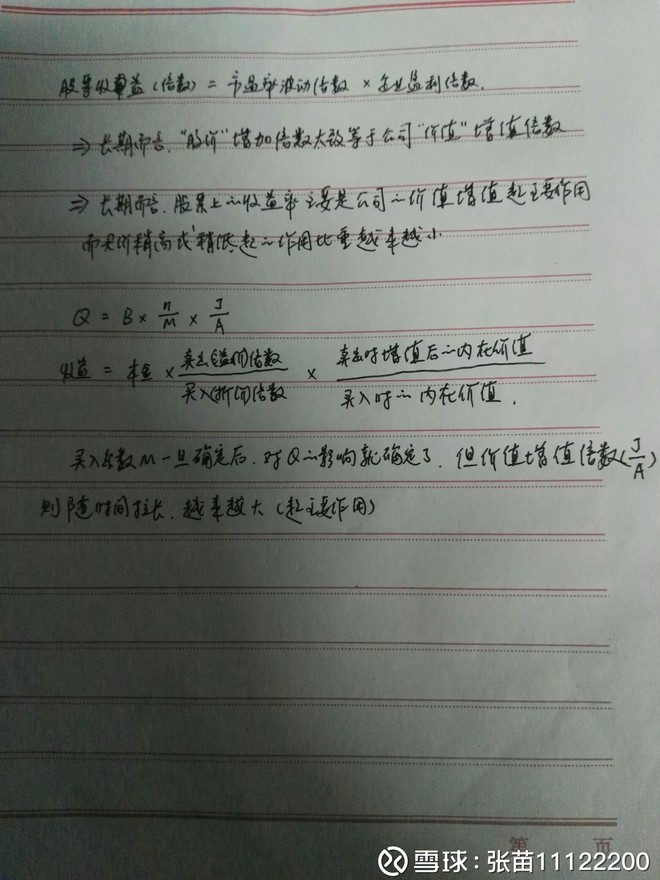 股票收益(倍数) = 市盈率波动倍数 × 企业盈利倍数.
⇒ 长期而言. "股价"增加倍数大致等于公司"价值"增值倍数
⇒ 长期而言. 股票上的收益率主要是公司的价值增值起主要作用
而买价稍高或稍低起的作用比重越来越小
Q = B × n/M × J/A
收益 = 本金 × 卖出(溢价)倍数/买入(折价)倍数 × 卖出时增值后的内在价值/买入时的内在价值.
买入系数M一旦确定后. 对Q的影响就确定了. 但价值增值倍数(J/A)
则随时间拉长. 越来越大(起主要作用)
第 页
雪球:张苗11122200